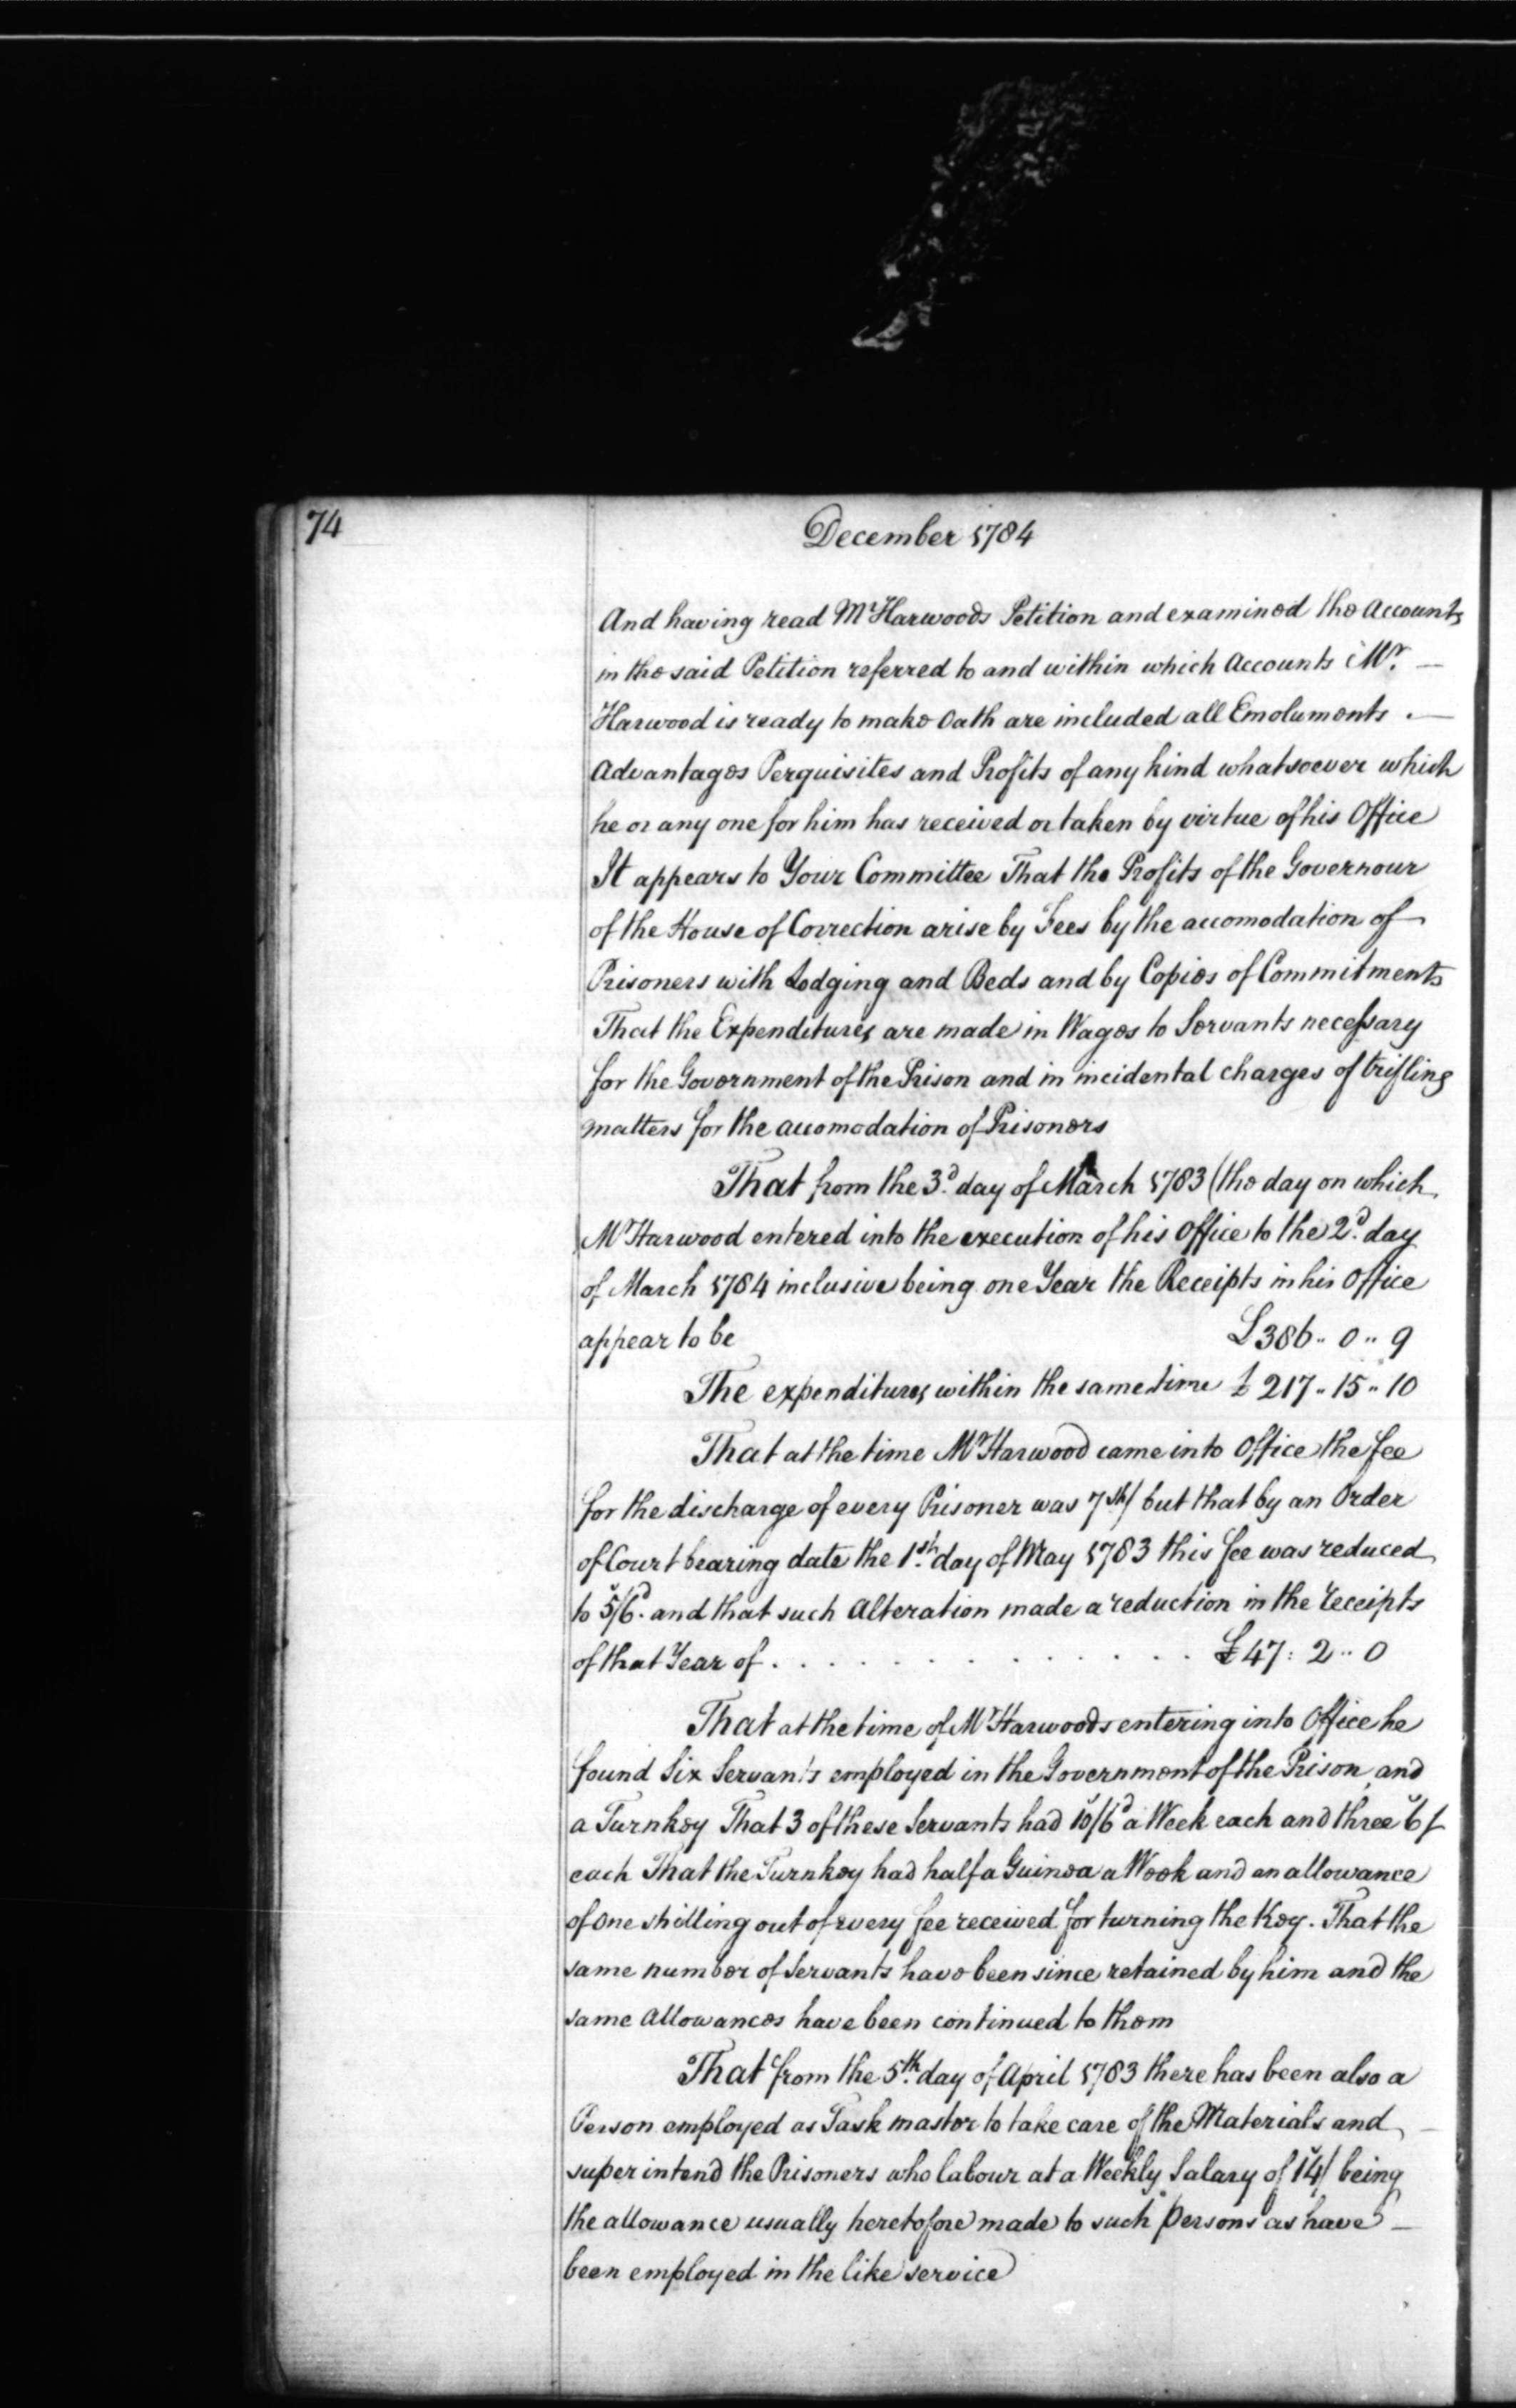 74
December 1784
And having read Mr Harwoods Petition and examined the Accounts
in the said Petition referred to and within which Accounts Mr. —
Harwood is ready to make Oath are included all Emoluments . —
Advantages Perquisites and Profits of any kind whatsoever which
he or any one for him has received or taken by virtue of his Office
It appears to Your Committee That the Profits of the Governour
of the House of Correction arise by Fees by the accomodation of
Prisoners with Lodging and Beds and by Copies of Commitments
That the Expenditures are made in Wages to Servants necessary
for the Government of the Prison and in incidental charges of trifling
matters for the accomodation of Prisoners
That from the 3d. day of March 1783 (the day on which
Mr Harwood entered into the execution of his Office to the 2d. day
of March 1784 inclusive being one Year the Receipts in his Office
appear to be £386 .. 0 .. 9
The expenditures within the same time £ 217 .. 15 .. 10
That at the time Mr Harwood came into Office the fee
for the discharge of every Prisoner was 7sh/ but that by an Order
of Court bearing date the 1st. day of May 1783 this fee was reduced
to 5s/6d. and that such Alteration made a reduction in the receipts
of that Year of . . . . . . . . . . . . . . £47 : 2 .. 0
That at the time of Mr Harwoods entering into Office he
found Six Servants employed in the Government of the Prison and
a Turnkey That 3 of these Servants had 10s/6d a Week each and three 6s/
each That the Turnkey had half a Guinea a Week and an allowance
of one shilling out of every fee received for turning the Key. That the
same number of Servants have been since retained by him and the
same Allowances have been continued to them
That from the 5th. day of April 1783 there has been also a
Person employed as Task master to take care of the Materials and —
superintend the Prisoners who labour at a Weekly Salary of 14s/ being
the allowance usually heretofore made to such Persons as have —
been employed in the like service